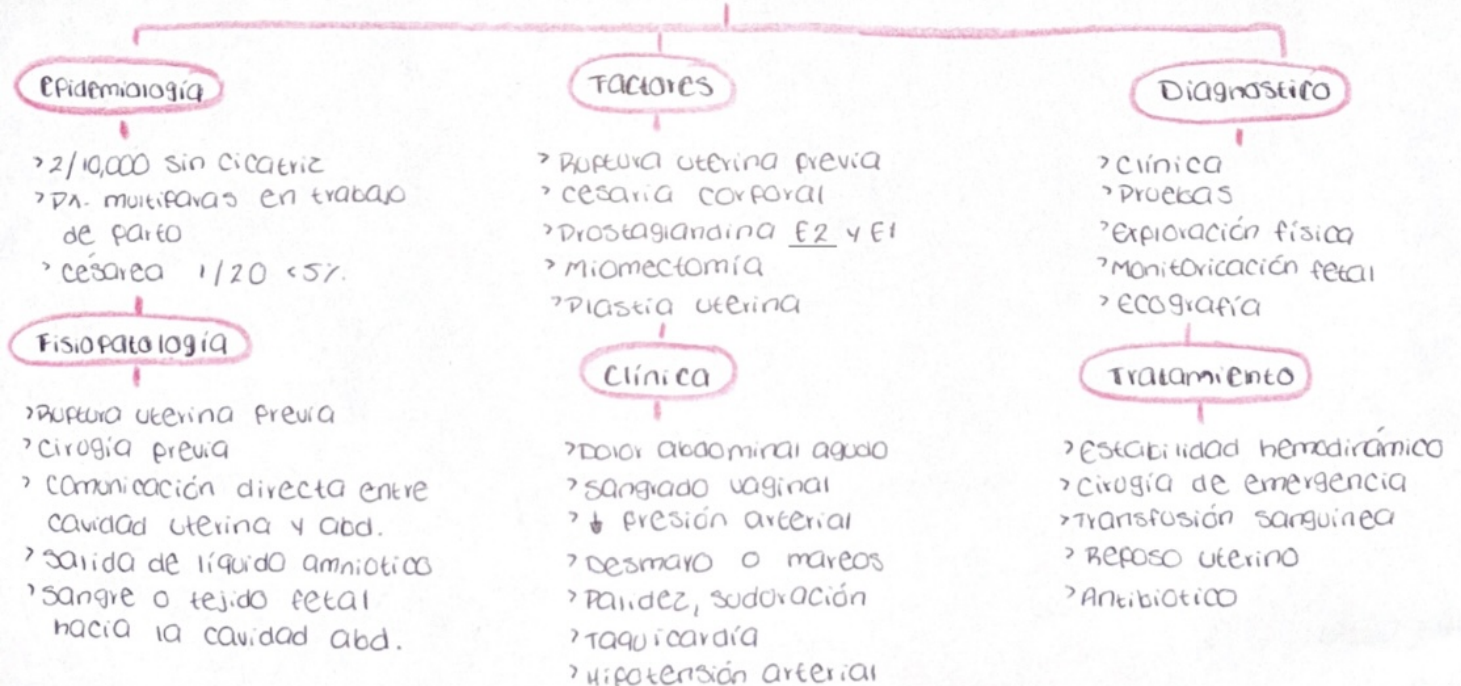 Epidemiología
> 2/10,000 sin cicatriz
> Pa. multiparas en trabajo
de parto
> cesárea 1/20 <5%.
Fisiopatología
> Ruptura uterina previa
> Cirogía previa
> comunicación directa entre
cavidad uterina y abd.
> salida de líquido amniotico
> sangre o tejido fetal
hacia la cavidad abd.
Factores
> Ruptura uterina previa
> cesaria corporal
> Prostaglandina E2 y E1
> Miomectomía
> Plastia uterina
Clínica
> Dolor abdominal agudo
> sangrado vaginal
> ↓ presión arterial
> Desmayo o mareos
> Palidez, sudoración
> Taquicardía
> Hipotensión arterial
Diagnostico
> Clínica
> Pruebas
> Exploración física
> Monitoricación fetal
> ecografía
Tratamiento
> Estabilidad hemodinámico
> Cirugía de emergencia
> Transfusión sanguínea
> Reposo uterino
> Antibiotico